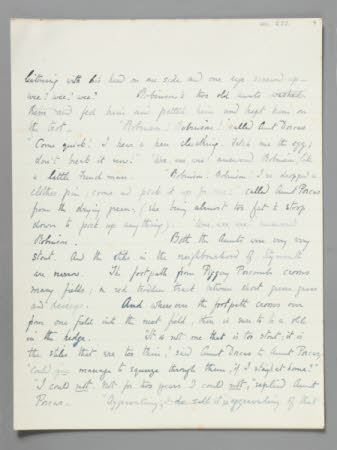 listening with his head on one side and one eye screwed up —
wee? wee? wee? Robinson's two old aunts washed
him and fed him and patted him and kept him on
the trot — "Robinson! Robinson!" called Aunt Dorcas
"Come quick! I hear a hen clucking. Fetch me the egg;
don't break it now!" "Wee, wee, wee!" answered Robinson, like
a little Frenchman. "Robinson! Robinson! I've dropped a
clothes peg, come and pick it up for me!" called Aunt Porcas
from the drying green, (she being almost too fat to stoop
down to pick up anything). "Wee, wee, wee!" answered
Robinson. Both the Aunts were very very
stout. And the stiles in the neighbourhood of Stymouth
are narrow. The footpath from Piggery Porcombe crosses
many fields; a red trodden track between short green grass
and daisies. And wherever the footpath crosses over
from one field into the next field, there is sure to be a stile
in the hedge. "It is not me that is too stout; it is
the stiles that are too thin," said Aunt Dorcas to Aunt Porcas,
"Could you manage to squeeze through them, if I stay at home?"
"I could not. Not for two years I could not," replied Aunt
Porcas. "Aggravating, I do call it aggravating of that